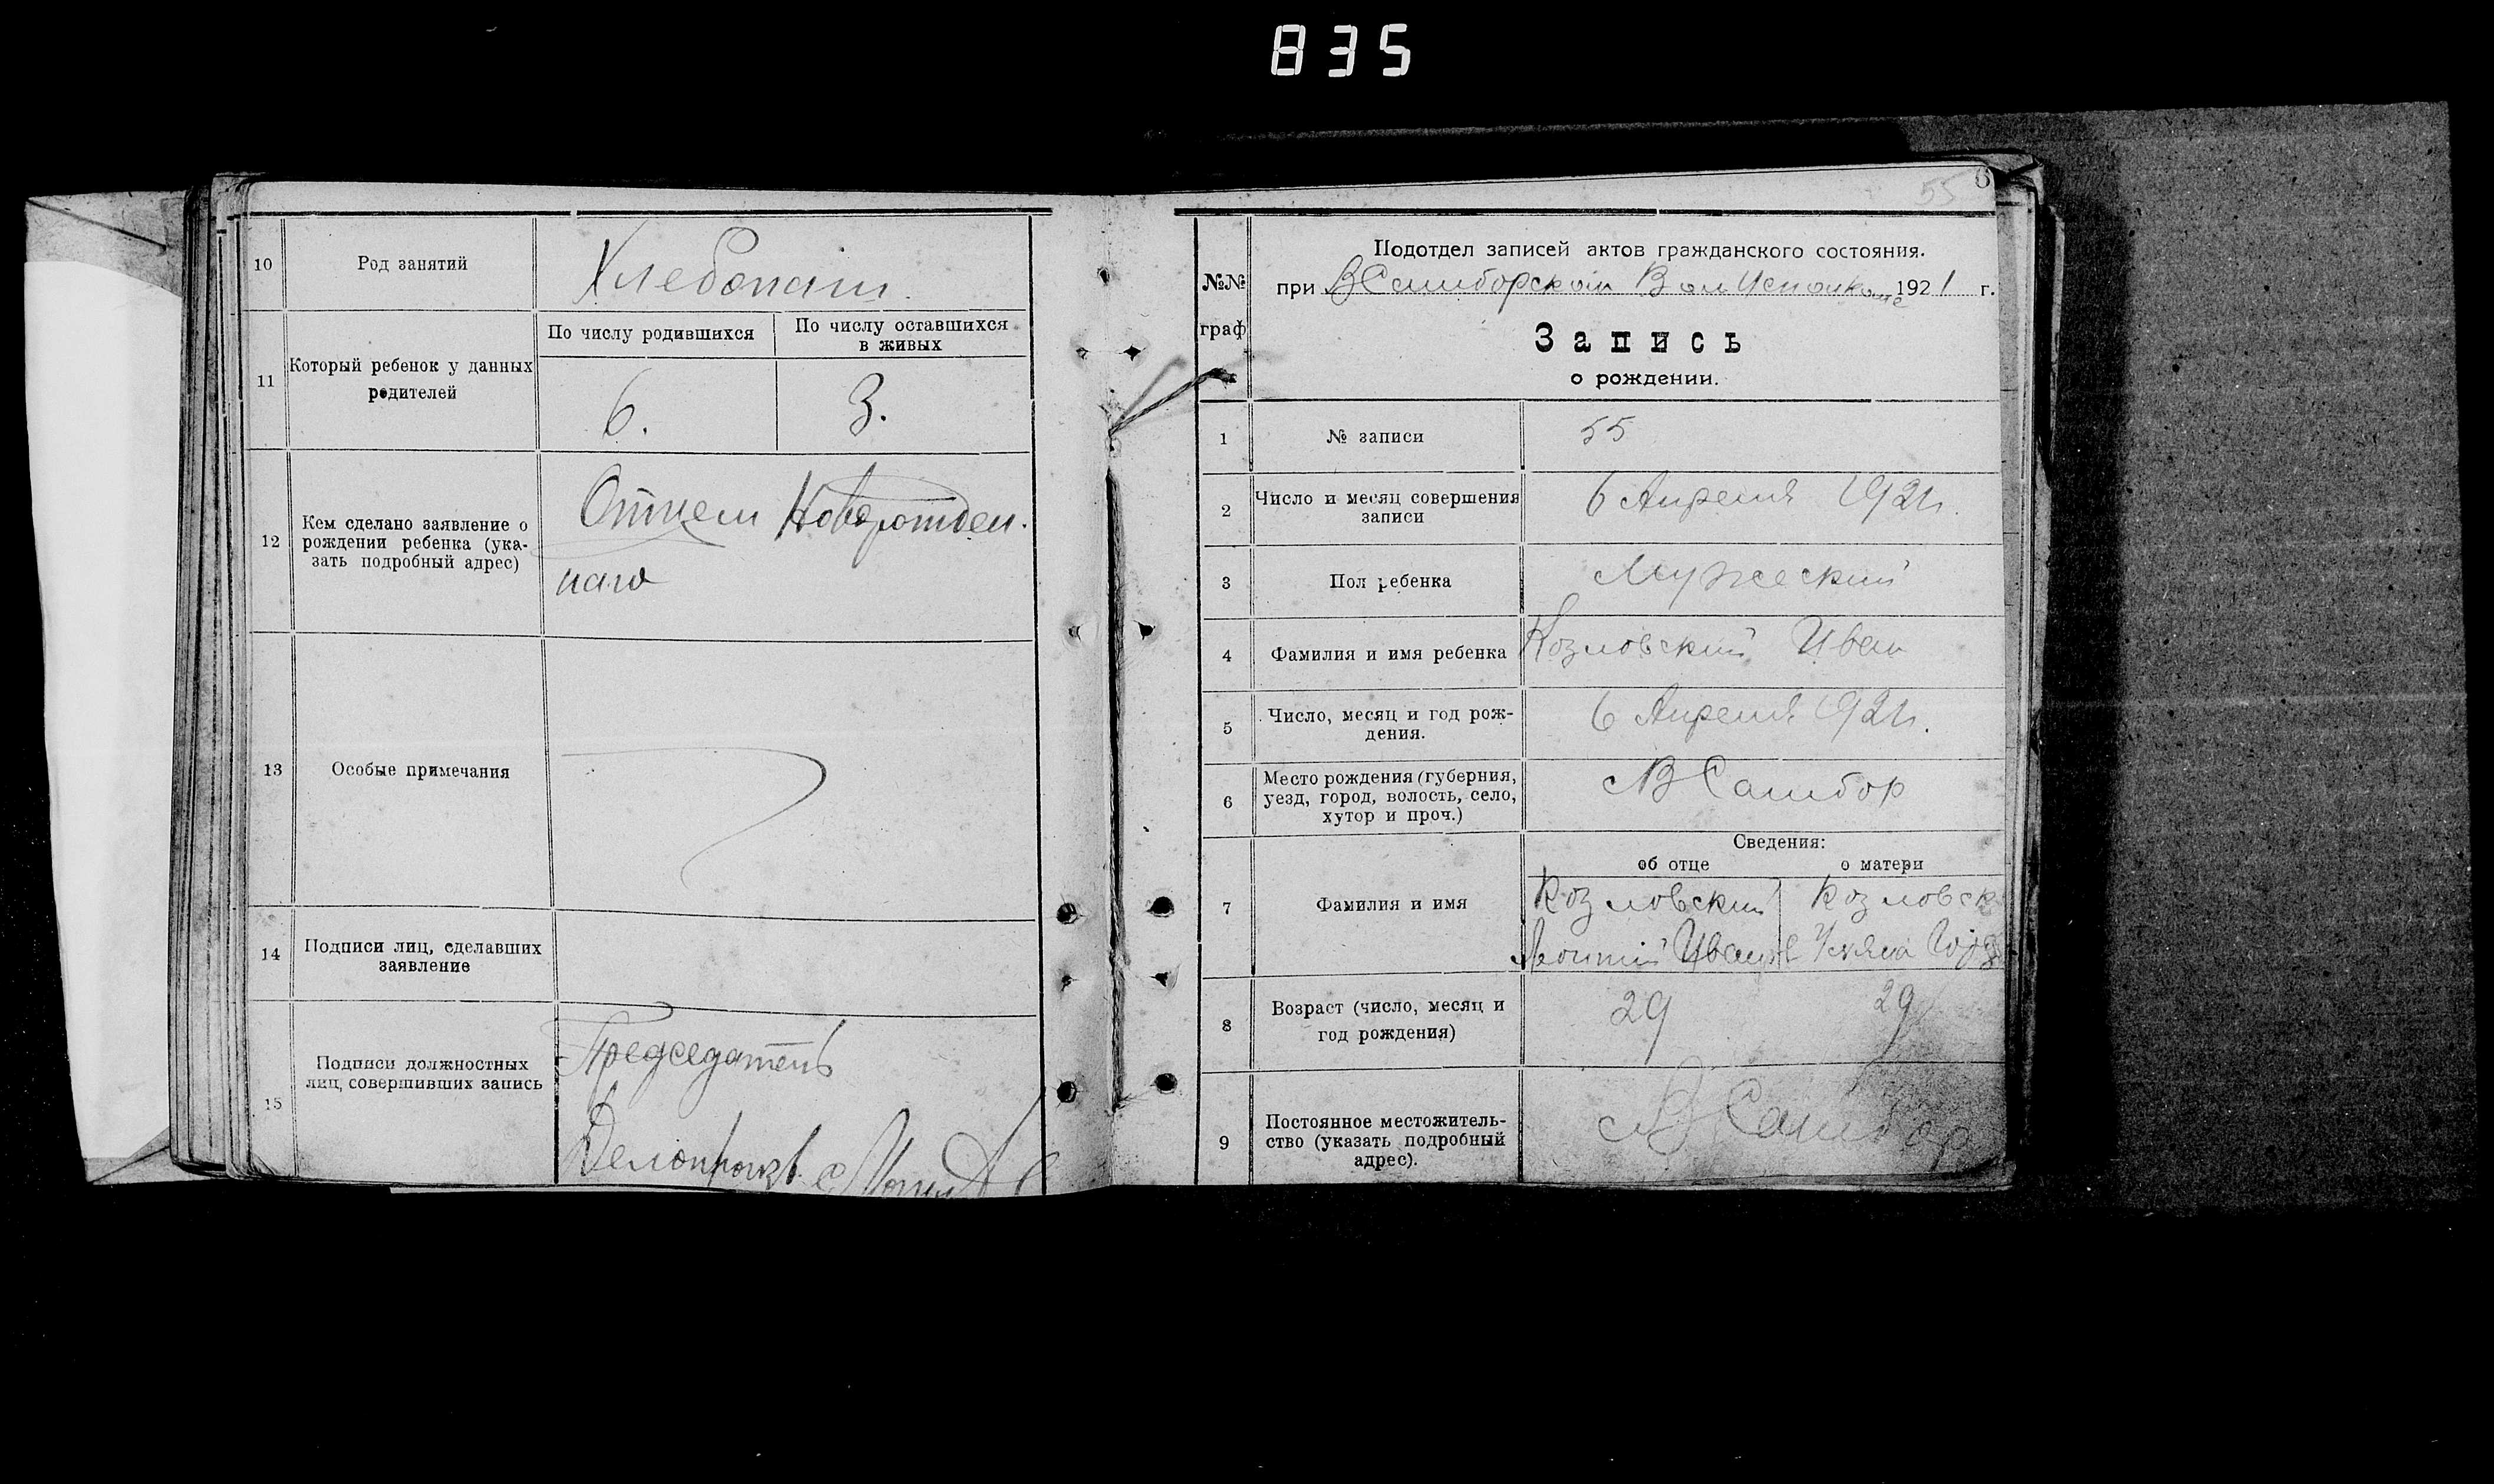 835
10
Род занятий
Хлебопаш.
11
Который ребенок у данных
родителей
По числу родившихся
По числу оставшихся
в живых
6.
3.
12
Кем сделано заявление о
рождении ребенка (ука-
зать подробный адрес)
Отцем Новорожден.
наго
13
Особые примечания
14
Подписи лиц, сделавших
заявление
15
Подписи должностных
лиц, совершивших запись
Председатель
Делопроизв.
55
6
№№
граф
Подотдел записей актов гражданского состояния.
при ВСамборском Вол Исполкоме 1921 г.
Запись
о рождении.
1
№ записи
55
2
Число и месяц совершения
записи
6 Апреля 1921г.
3
Пол ребенка
Мужеский
4
Фамилия и имя ребенка
Козловский Иван
5
Число, месяц и год рож-
дения.
6 Апреля 1921г.
6
Место рождения (губерния,
уезд, город, волость, село,
хутор и проч.)
с В Самбор
Сведения:
об отце
о матери
7
Фамилия и имя
Козловский
Козловск
Леонтий Иванов
8
Возраст (число, месяц и
год рождения)
29
29
9
Постоянное местожитель-
ство (указать подробный
адрес).
с В Самбор